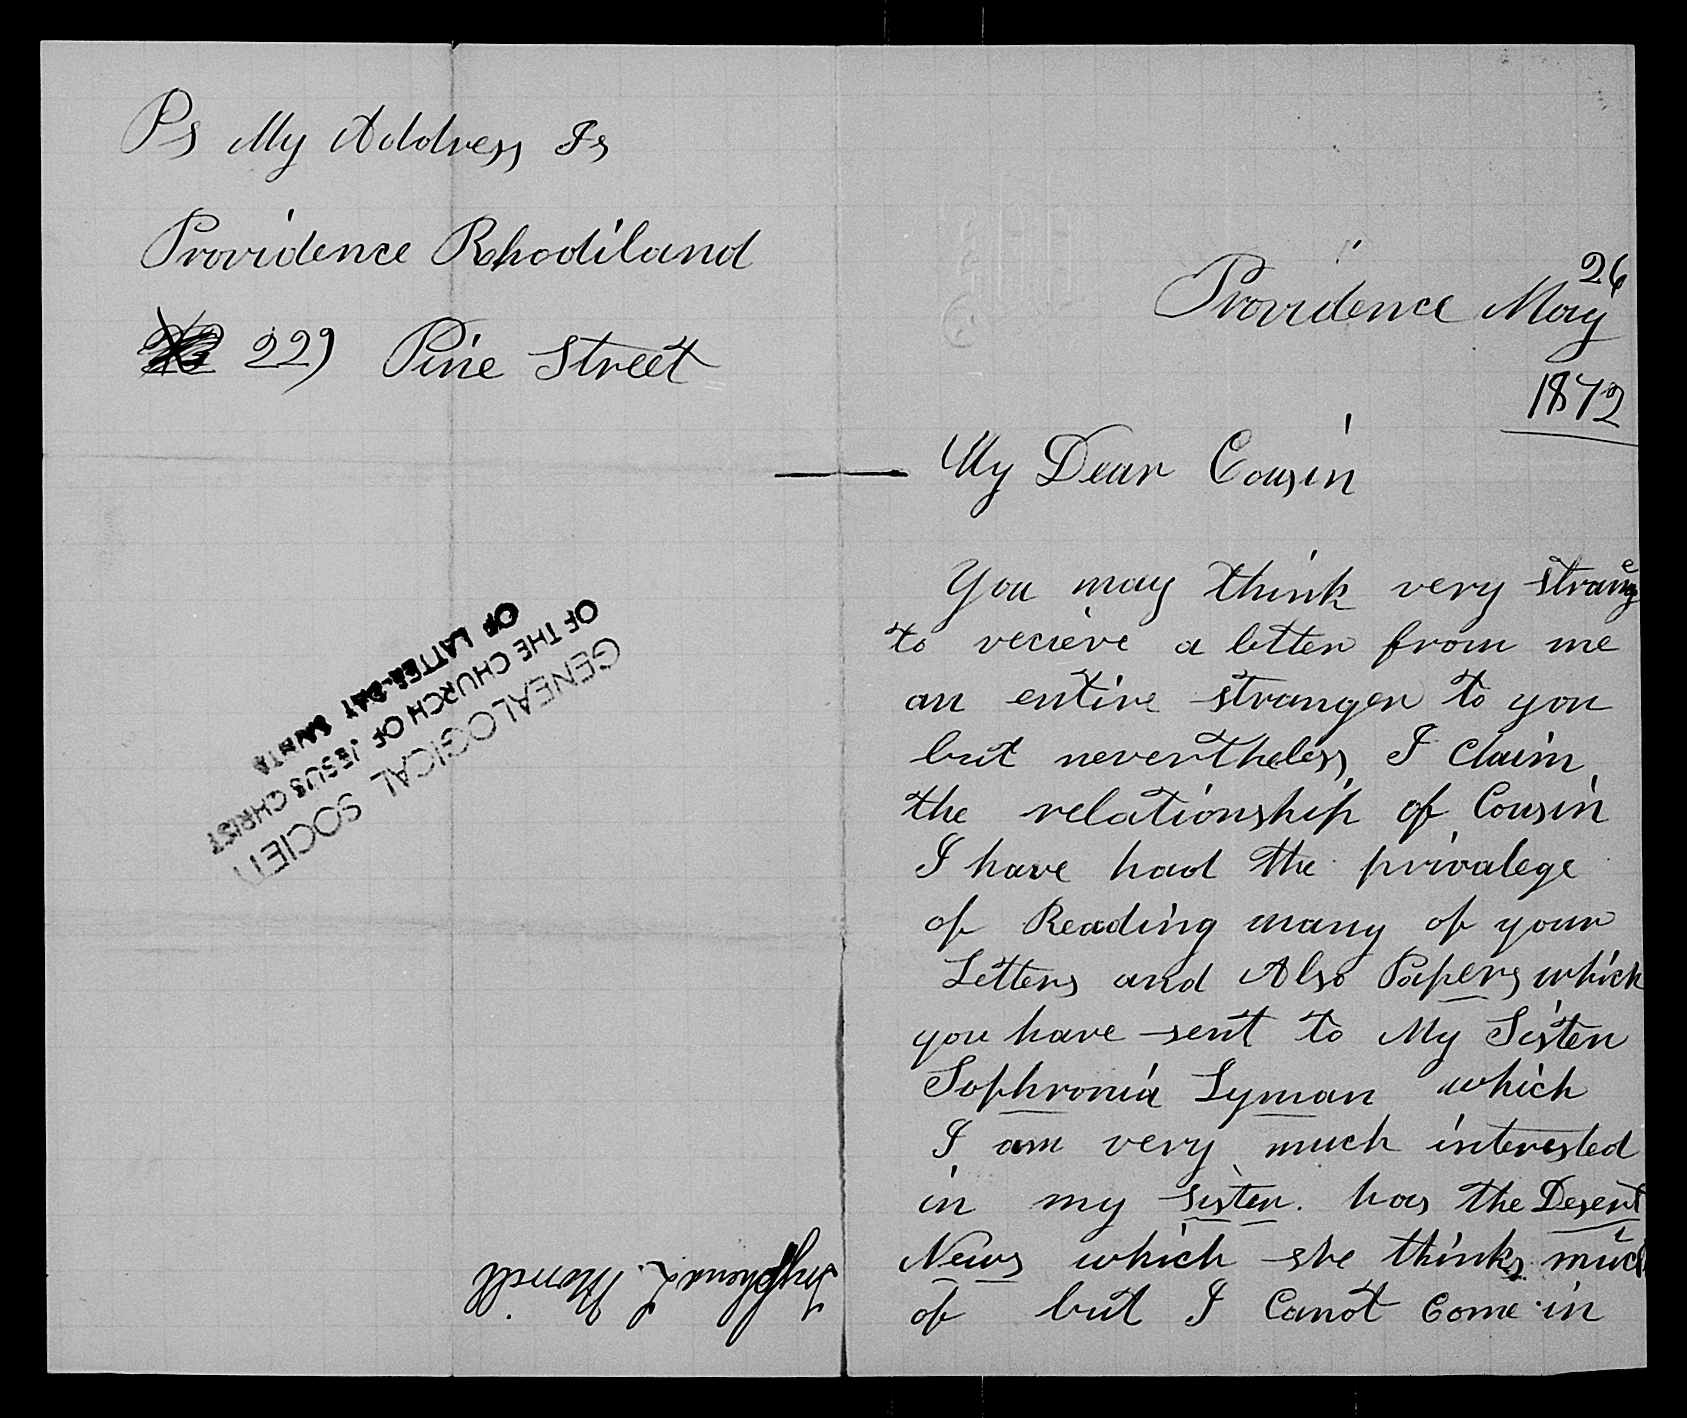 Ps My Address Is
Providence Rhodiland
229 Pine Street
GENEALOGICAL SOCIETY
OF THE CHURCH OF JESUS CHRIST
OF LATTER-DAY SAINTS
Tryphena L. Morrell.
Providence May 26
1872
My Dear Cousin
You may think very strange
to recieve a letter from me
an entire stranger to you
but nevertheless I claim
the relationship of Cousin
I have had the privalege
of Reading many of your
Letters and Also Papers which
you have sent to My Sister
Sophronia Lyman which
I am very much interested
in my sister. has the Desert
News which she thinks much
of but I Canot Come in